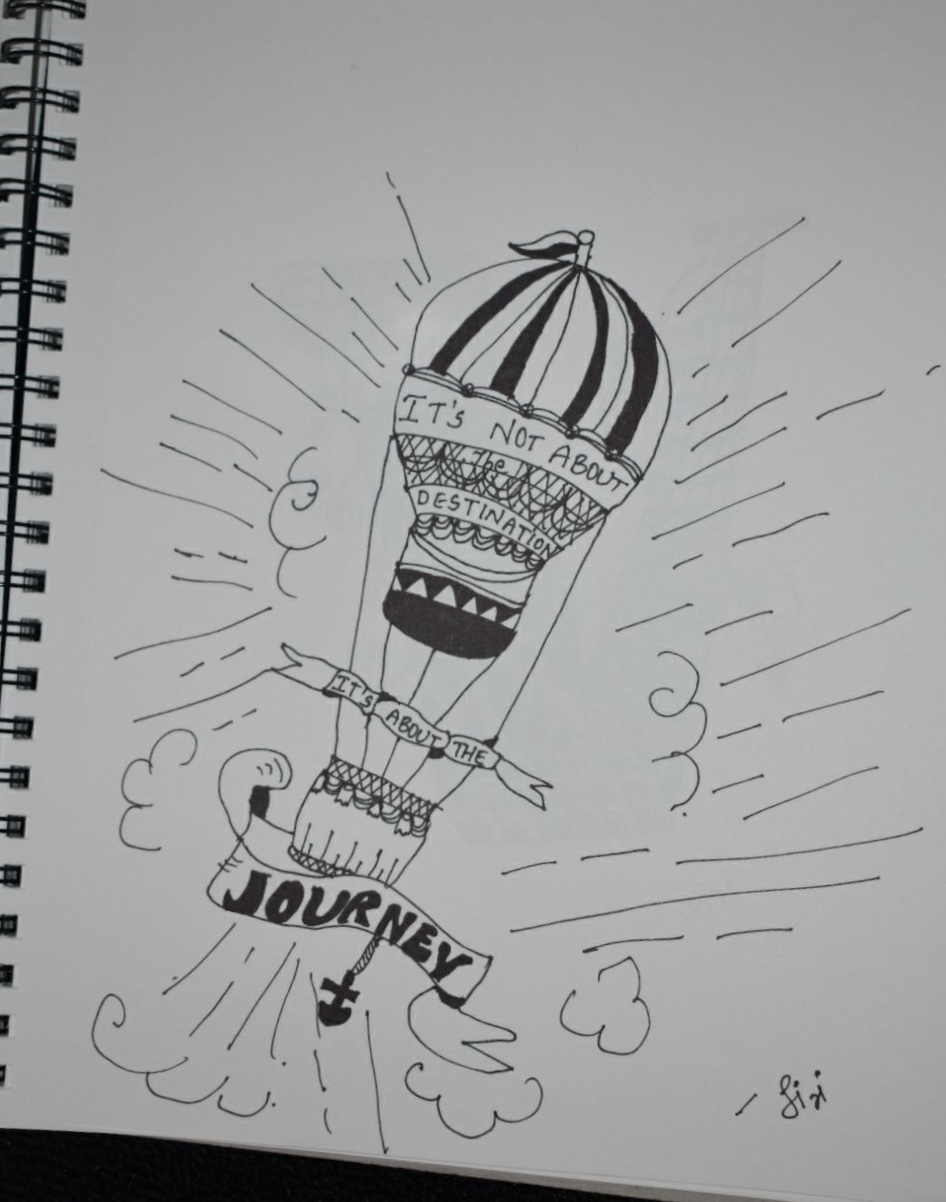 IT'S NOT ABOUT
The
DESTINATION
IT'S ABOUT THE
JOURNEY